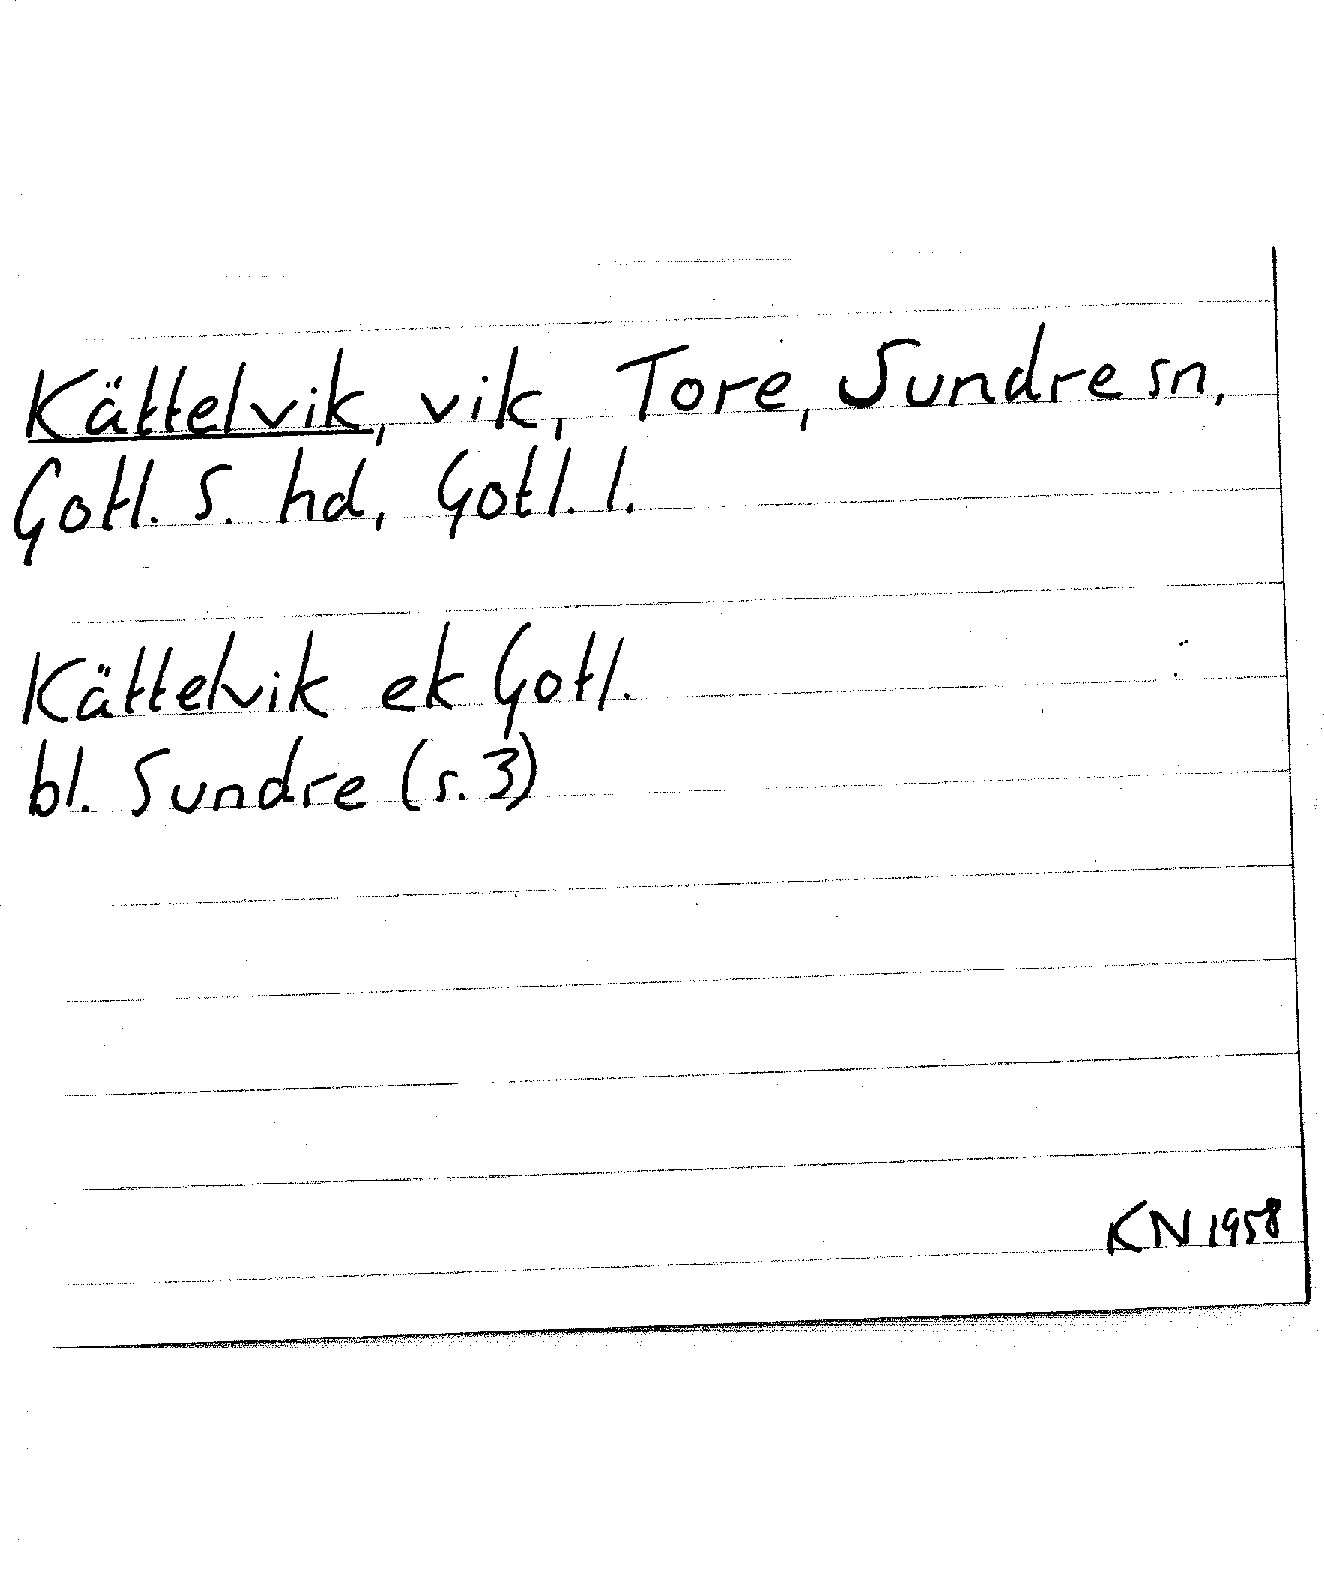 Kättelvik, vik, Tore, Sundre sn,
Gotl. S. hd, Gotl. l.
Kättelvik ek Gotl.
bl. Sundre (s. 3)
KN 1958